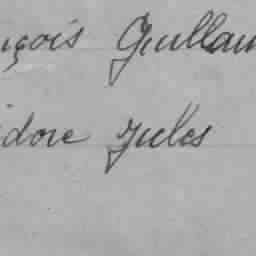 nçois Guillau
idore Jules